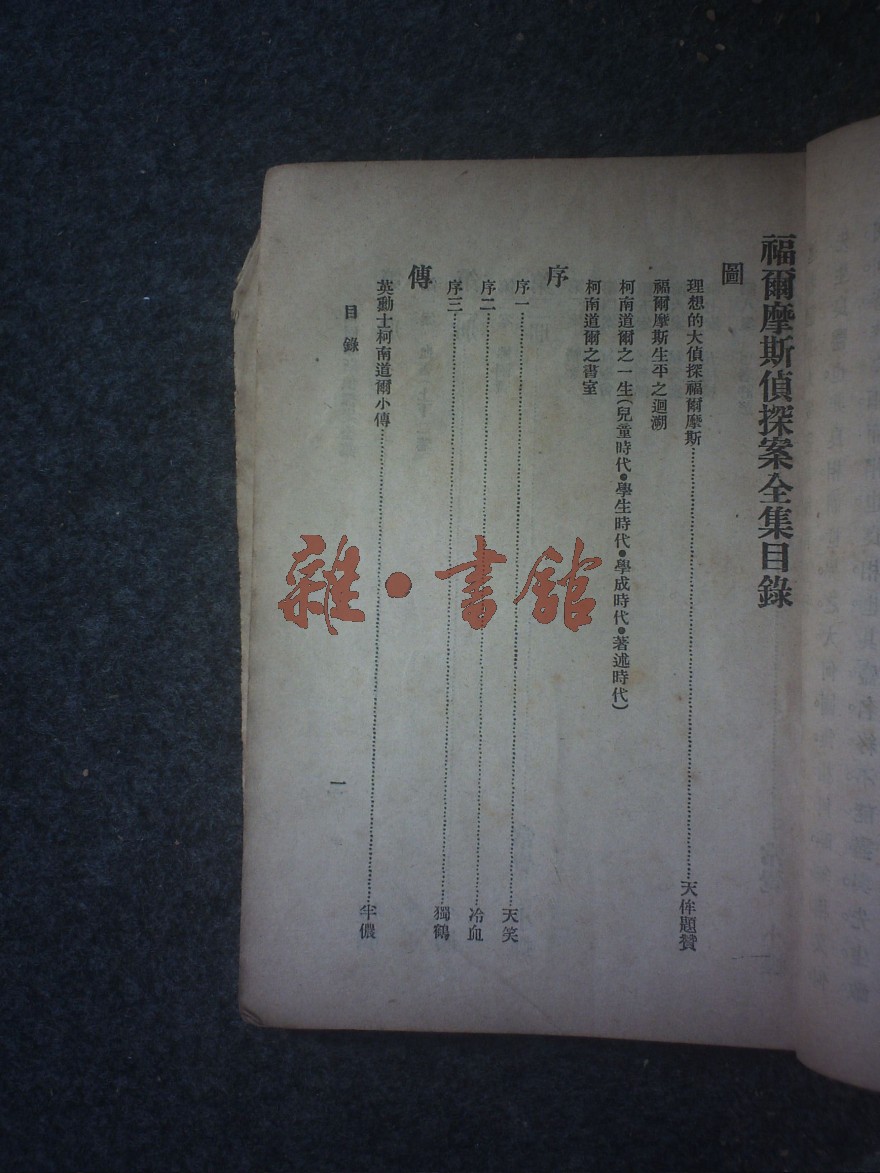 福爾摩斯偵探案全集目錄
圖
理想的大偵探福爾摩斯……天侔題贊
福爾摩斯生平之迴溯
柯南道爾之一生(兒童時代•學生時代•學成時代•著述時代)
柯南道爾之書室
序
序一……天笑
序二……冷血
序三……獨鶴
傳
英勳士柯南道爾小傳……半儂
目錄
一
雜•書館